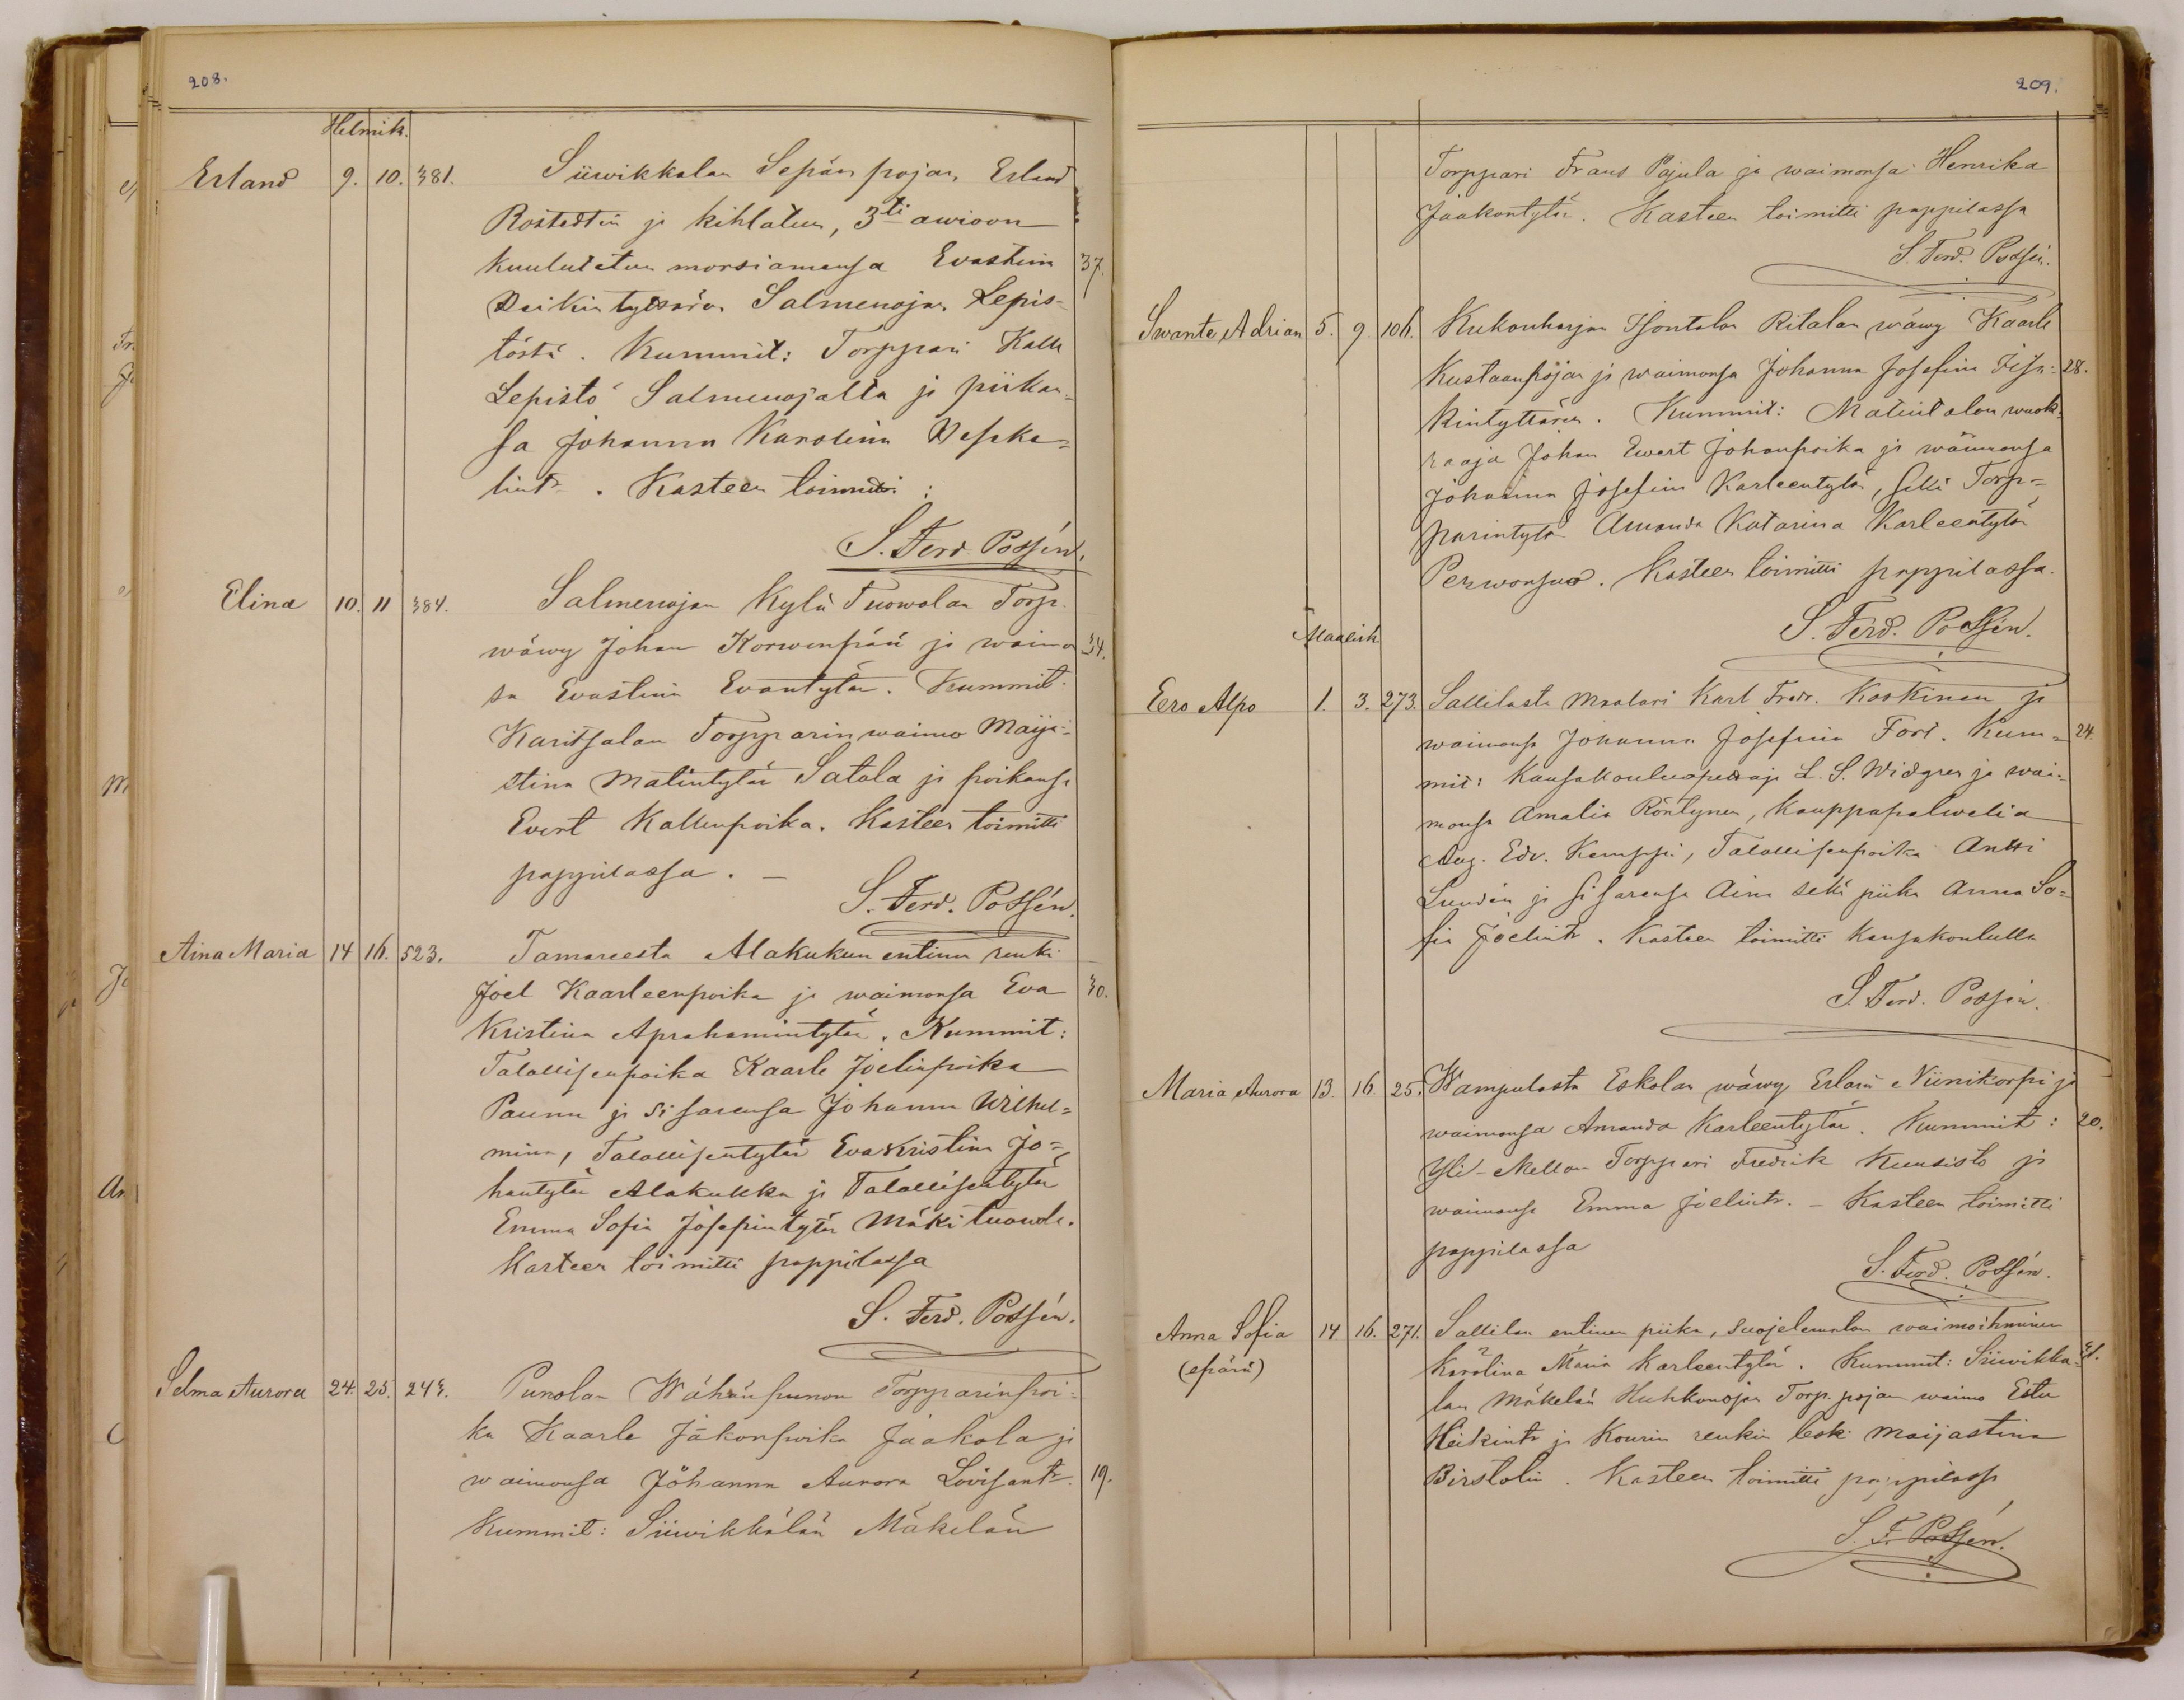 208.
Helmik.
Erland 9. 10. 381. Siiwikkalan Sepän pojan Erland
Rostedtin ja kihlatun, 3ti awioon
kuulutetun morsiamensa Evastiina 37.
Heikintyttären Salmenojan Lepis-
töstä. Kummit: Torppari Kalle
Lepistö Salmenojalta ja piikan-
sa Johanna Karolina
lint. . Kasteen toimitti:
S. Ferd. Possén.
Elina 10. 11 384. Salmenojan Kylä Tuowolan Torp.
wäwy Johan Korwenpää ja waimon 34.
sa Evastiina Evantytär. Kummit:
Karitsalan Torpparinwaimo Maija-
stina Matintytär Satola ja poikansa
Evert Kallenpoika. Kasteen toimitti
pappilassa. —
S. Ferd. Possén.
Aina Maria 14 16. 523. Tamareesta Alakukun entinen renki
Joel Kaarleenpoika ja waimonsa Eva 30.
Kristina Aprahamintytär. Kummit:
Talollisenpoika Kaarle Joelinpoika
Paunu ja sisarensa Johanna Wilhel-
mina, Talollisentytär Eva Kristina Jo-
hantytär Alakukku ja Talollisentytär
Emma Sofia Josepintytär Mäkituowola.
Kasteen toimitti pappilassa
S. Ferd. Possén.
Selma Aurora 24. 25. 243. Punolan Wähänpunon Torpparinpoi-
ka Kaarle Jäkonpoika Jaakola ja
waimonsa Johanna Aurora Lovisantr. 19.
Kummit: Siiwikkälän Mäkelän
209.
Torppari Frans Pajula ja waimonsa Henrika
Jaakontytär. Kasteen toimitti pappilassa
S. Ferd. Possén.
Swante Adrian 5. 9 106. Kukonharjan Isontalon Ritalan wäwy Kaarle
Kustaanpojan ja waimonsa Johanna Josefina Fisa- 28.
kintyttären. Kummit: Matintalon wuok-
raaja Johan Ewert Johanpoika ja waimonsa
Johanna Josefina Karleentytär, sekä Torp-
parintytär Amanda Katarina Karleentytär
Perwonsuo. Kasteen toimitti pappilassa.
S. Ferd. Possén.
Maalisk
Eero Alpo 1. 3. 273. Sallilasta Maalari Karl Fredr. Koskinen ja
waimonsa Johanna Josefina Fors. Kum- 24.
mit: Kansakouluopettaja L. S. Widgren ja wai-
monsa Amalia Röntynen, Kauppapalwelia
Aug. Edv. Kemppi, Talollisenpoika Antti
Lundén ja sisarensa Aina sekä piika Anna So-
fia Joelintr. Kasteen toimitti Kansakoululla
S. Ferd. Possén.
Maria Aurora 13. 16 25. Wampulasta Eskolan wäwy Erland Niinikorpi ja
waimonsa Amanda Karleentytär. Kummit: 20.
Yli-Mellon Torppari Fredrik Kuusisto ja
waimonsa Emma Joelintr. – Kasteen toimitti
pappilassa
S. Ferd. Possén.
Anna Sofia 14 16. 271. Sallilan entinen piika, suojelewalan waimoihminen
(epärä) Karolina Maria Karleentytär. Kummit: Siiwikka-
lan Mäkelän Huhkonojan Torp. pojan waimo Ester
Heikintr. ja Kourin renkin leski Maijastina
Birstolin. Kasteen toimitti pappilassa
S. F. Possén.